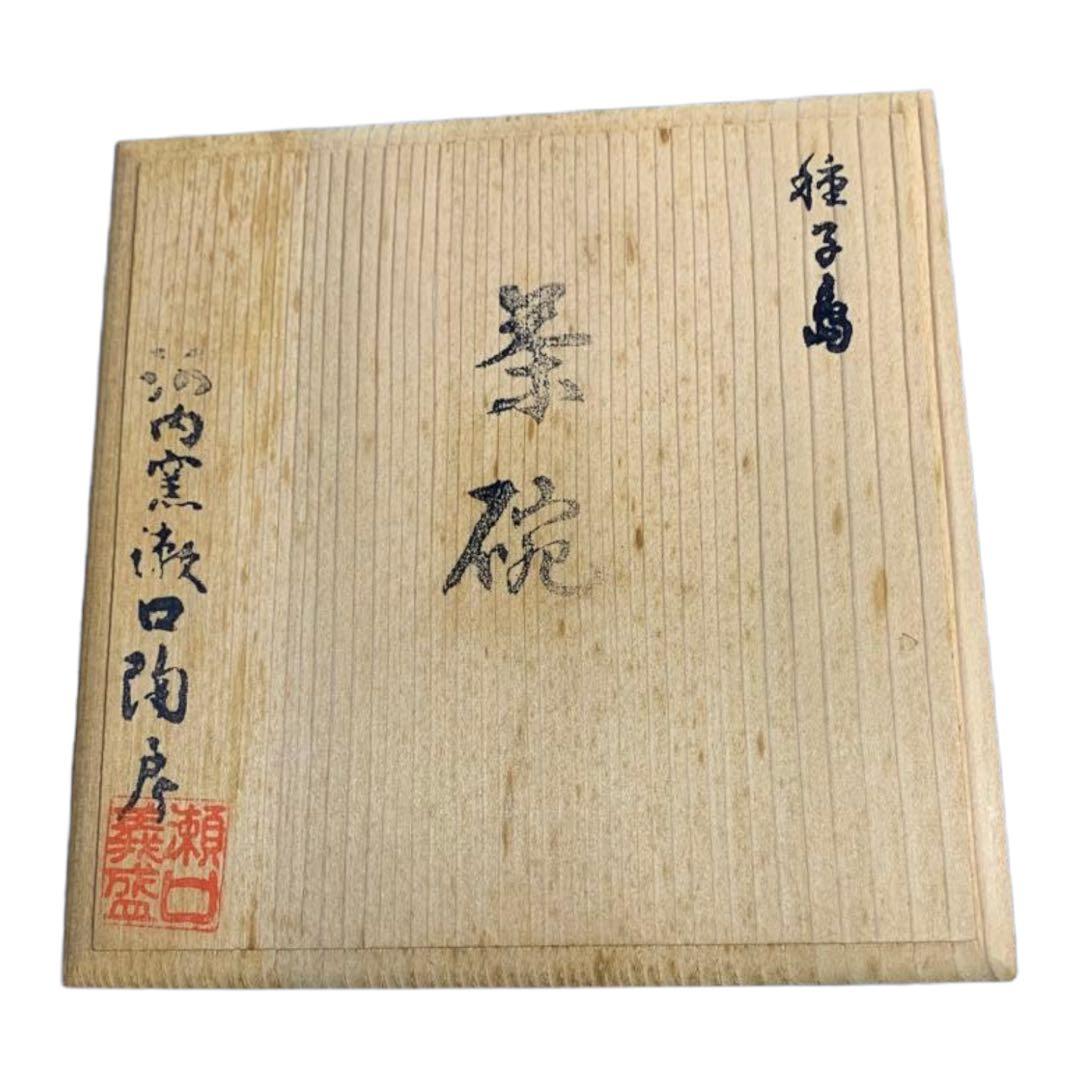 種子島
茶碗
河内窯瀬口陶房
瀬口
義盛